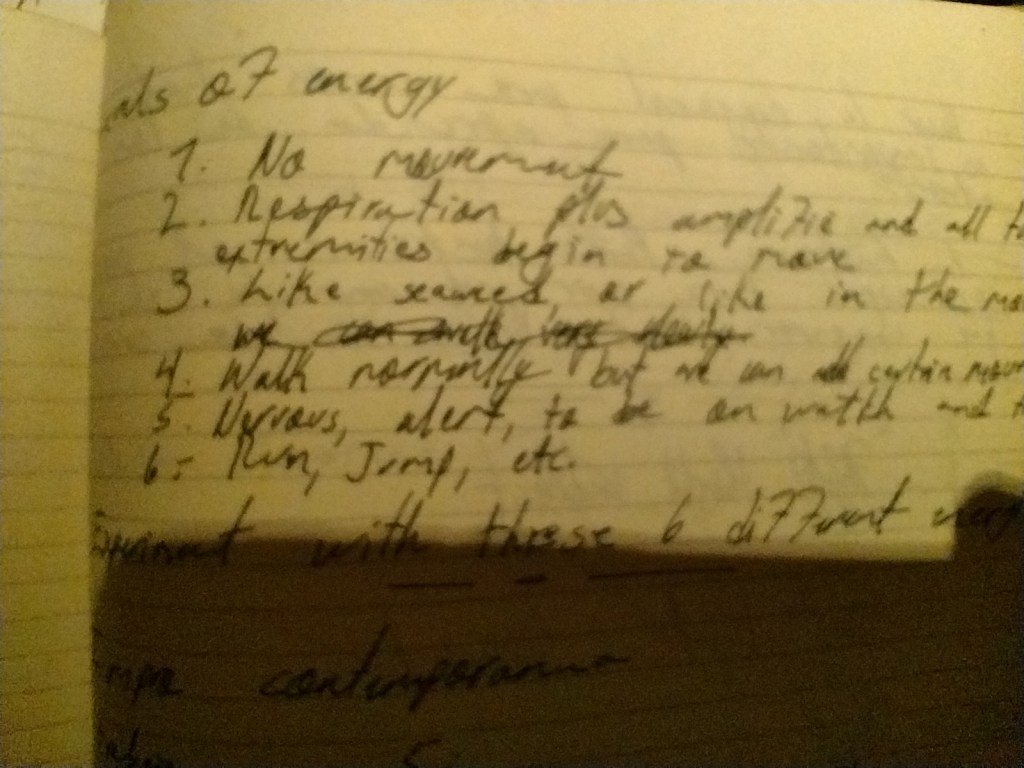 of energy
1. No movement
2. Respiration plus amplifie and all
extremities begin to move
3. Like seaweed, or like in the
we can walk very slowly
4. Walk normally but we can add certain
5. Nervous, alert, to be on watch and
6.- Run, Jump, etc.
with these 6 different